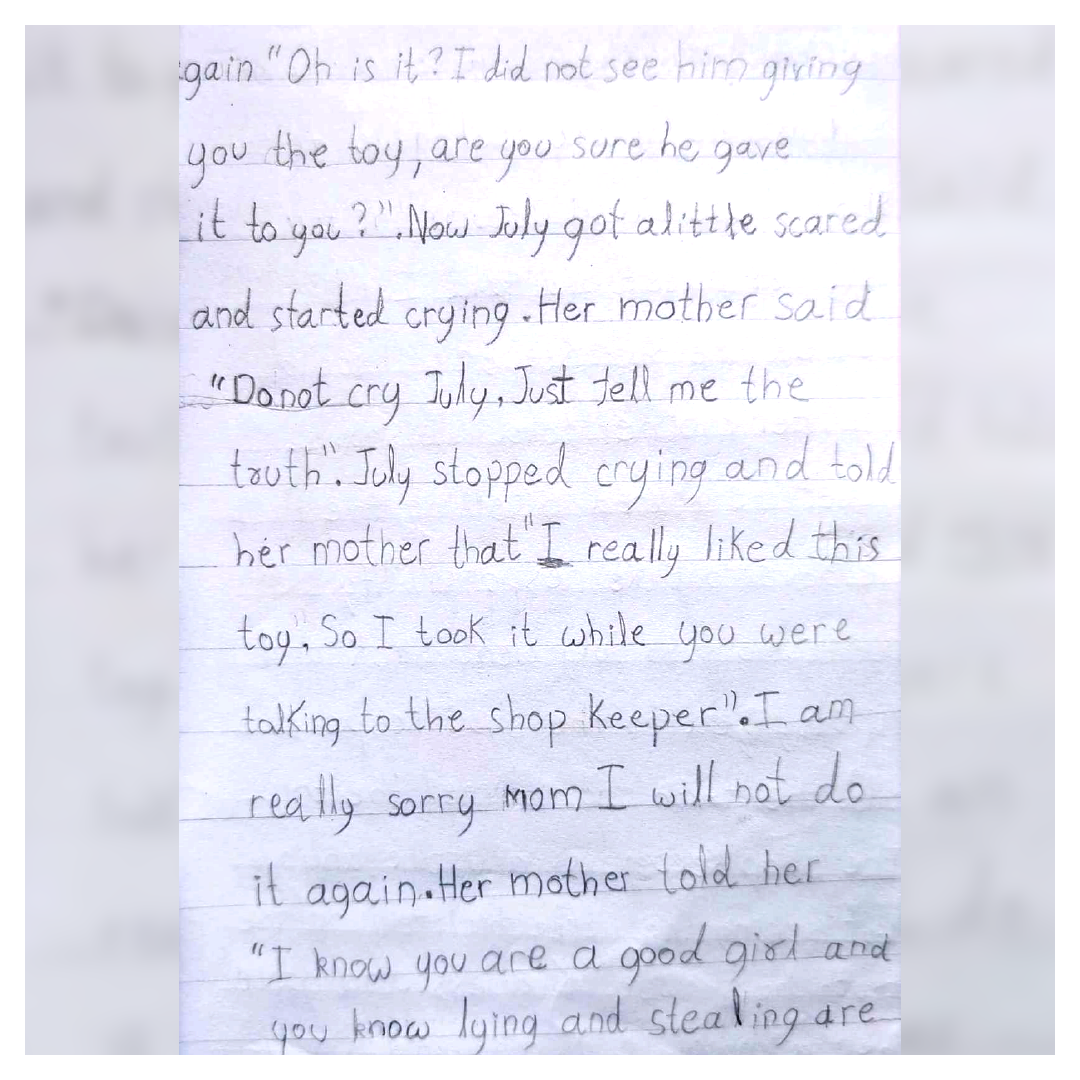 gain "Oh is it? I did not see him giving
you the toy, are you sure he gave
it to you?". Now July got alittle scared
and started crying. Her mother said
"Donot cry July, Just tell me the
truth". July stopped crying and told
her mother that "I really liked this
toy". So I took it while you were
talking to the shop keeper". I am
really sorry mom I will not do
it again. Her mother told her
"I know you are a good girl and
you know lying and stealing are